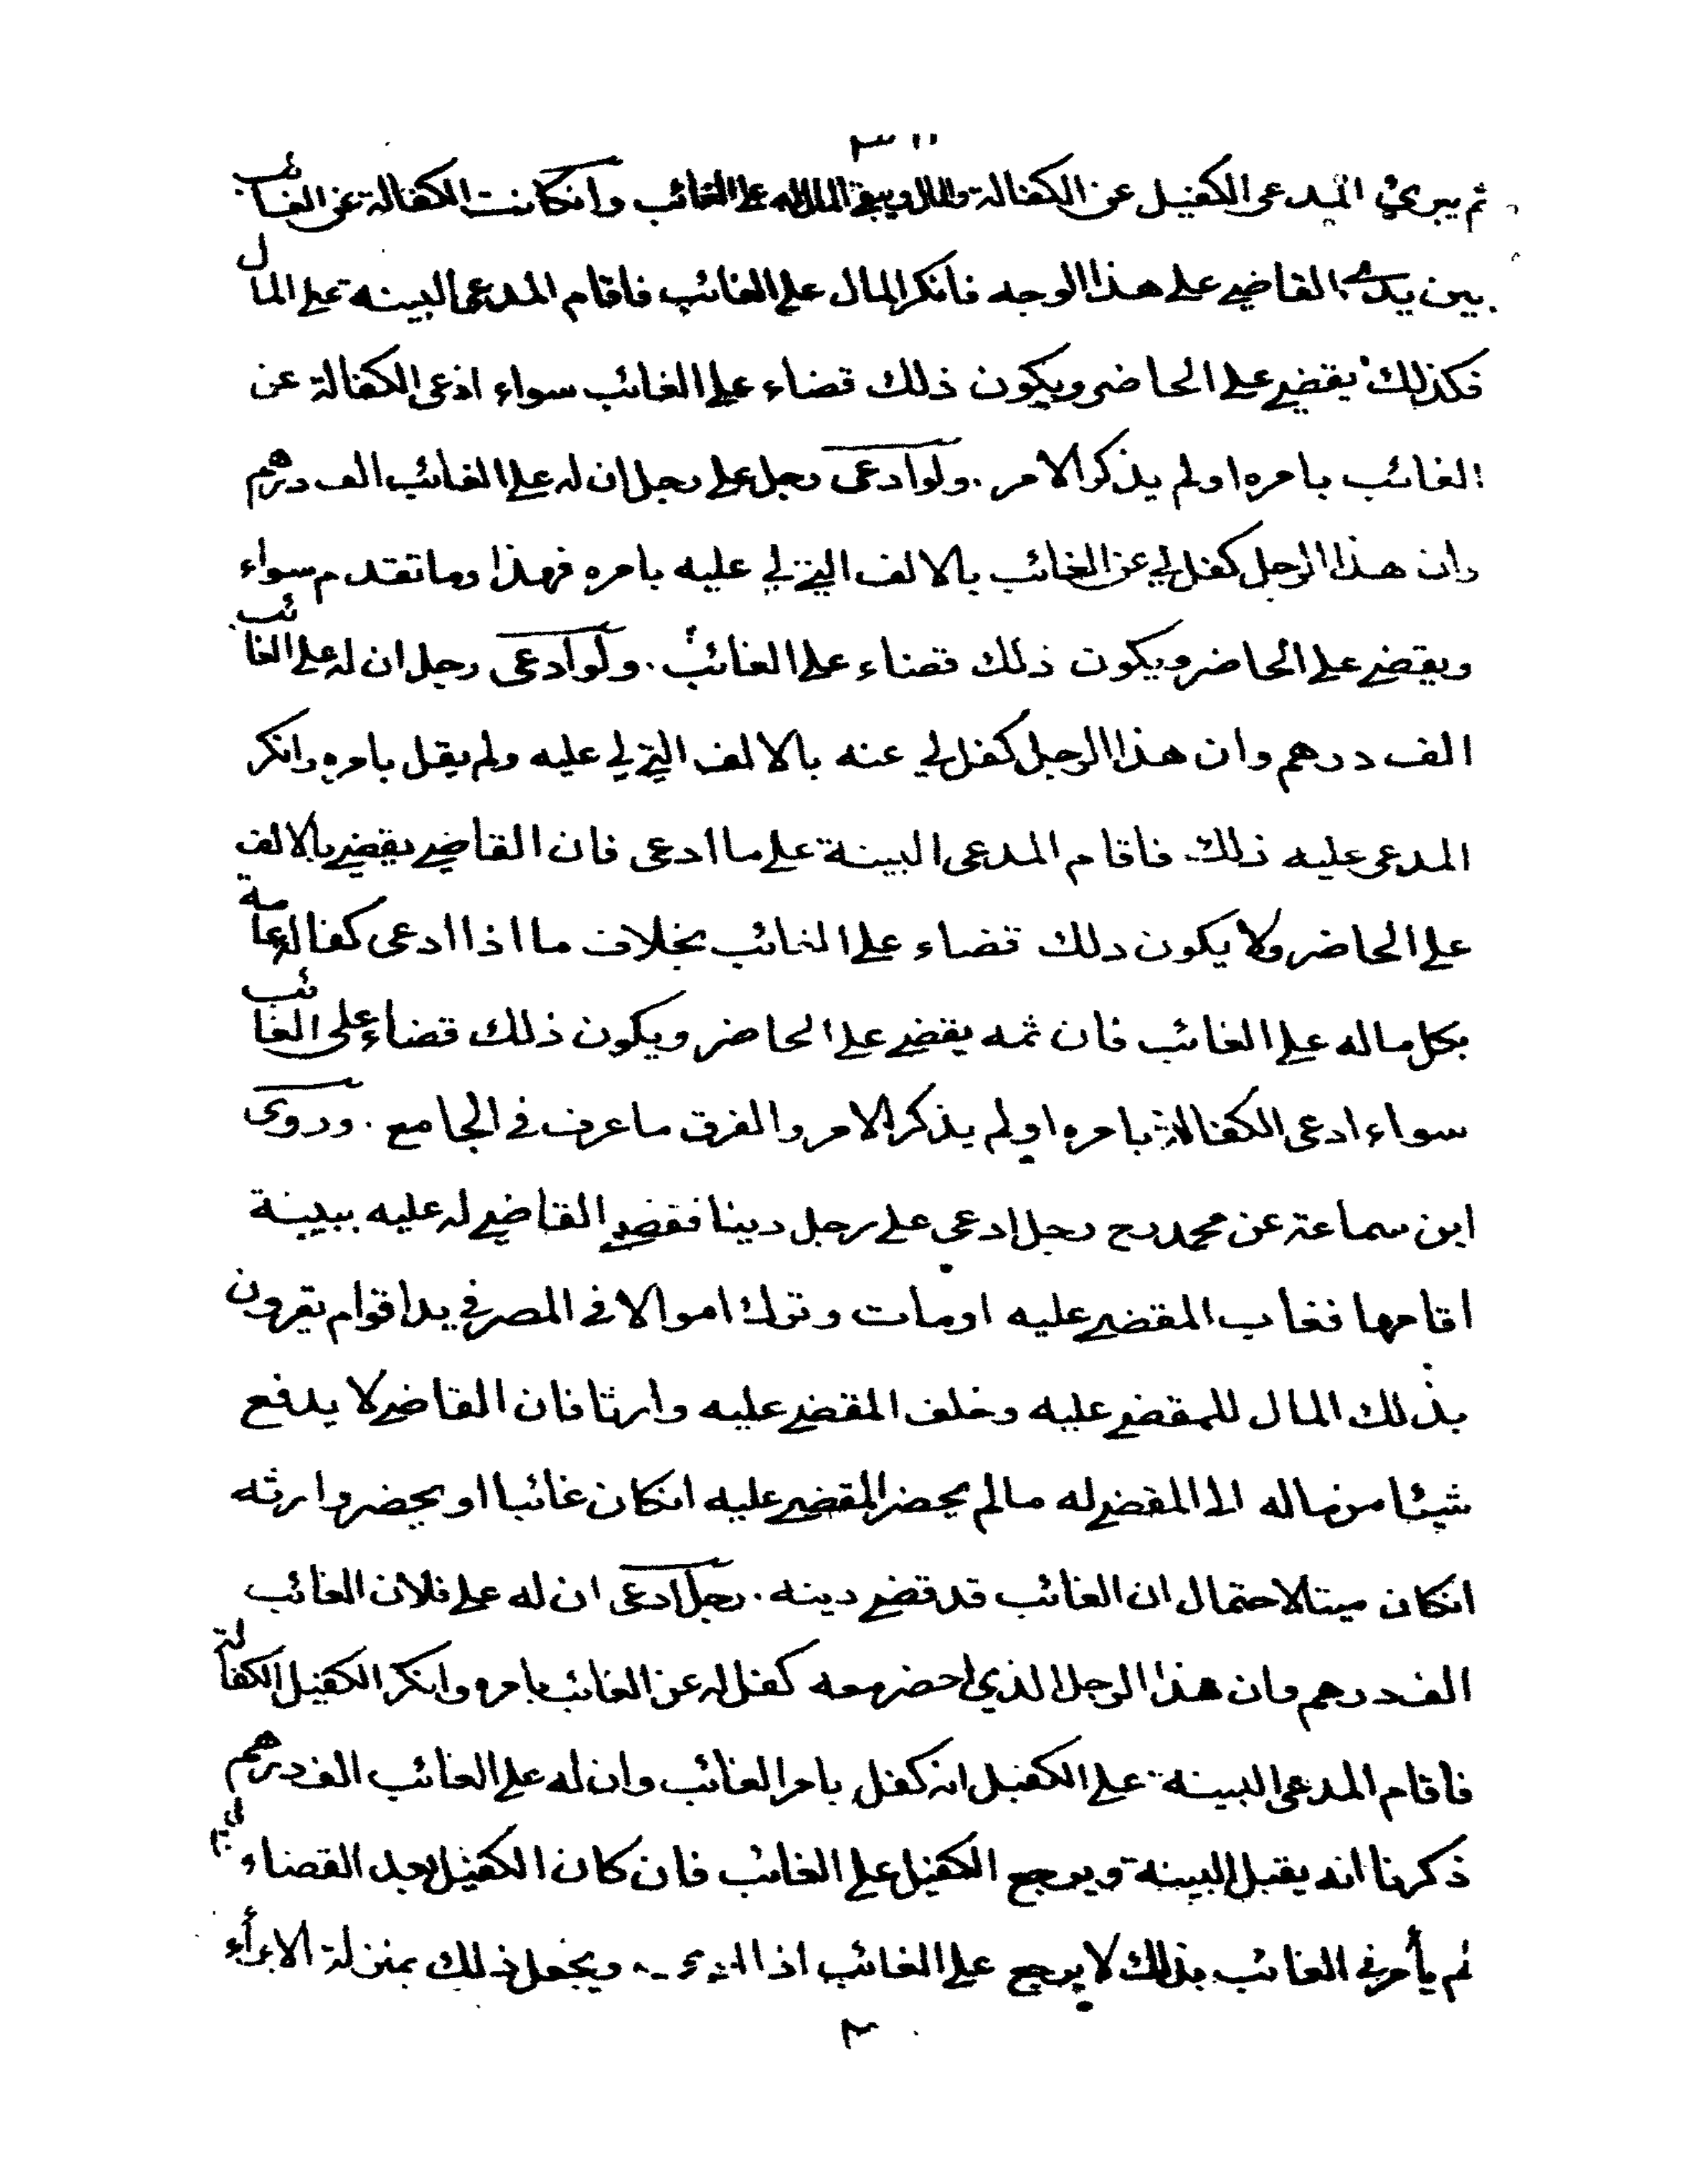 ثم يبرئ المدعى الكفيل عن الكفالة والمال ويبقى المال له على الغائب وانكانت الكفالة عن الغائب
بين يدى القاضي على هذا الوجه فانكر المال على الغائب فاقام المدعى البينة على المال
فكذلك يقضي على الحاضر ويكون ذلك قضاء على الغائب سواء ادعى الكفالة عن
الغائب بامره اولم يذكر الامر . ولو ادعى رجل على رجل ان له على الغائب الف درهم
وان هذا الرجل كفل لي عن الغائب بالالف التي لي عليه بامره فهذا وما تقدم سواء
ويقضي على الحاضر ويكون ذلك قضاء على الغائب . ولو ادعى رجل ان له على الغائب
الف درهم وان هذا الرجل كفل لي عنه بالالف التي لي عليه ولم يقل بامره وانكر
المدعى عليه ذلك فاقام المدعى البينة على ما ادعى فان القاضي يقضي بالالف
على الحاضر ولا يكون دلك قضاء على الغائب بخلاف ما اذا ادعى كفالة عامة
بكل ماله على الغائب فان ثمه يقضي على الحاضر ويكون ذلك قضاء على الغائب
سواء ادعى الكفالة بامره اولم يذكر الامر والفرق ما عرف في الجامع . وروى
ابن سماعة عن محمد رح رجل ادعى على رجل دينا فقضى القاضي له عليه ببينة
اقامها فغاب المقضي عليه اومات وترك اموالا في المصر في يد اقوام يقرون
بذلك المال للمقضي عليه وخلف المقضي عليه وارثا فان القاضي لا يدفع
شيئا من ماله الى المقضي له مالم يحضر المقضي عليه انكان غائبا او يحضر وارثه
انكان ميتا لاحتمال ان الغائب قد قضى دينه . رجل ادعى ان له على فلان الغائب
الف درهم وان هذا الرجل الذي احضر معه كفل له عن الغائب بامره وانكر الكفيل الكفالة
فاقام المدعى البينة على الكفيل انه كفل بامر الغائب وان له على الغائب الف درهم
ذكرنا انه يقبل البينة ويرجع الكفيل على الغائب فان كان الكفيل بعد القضاء
لم يأمرني الغائب بذلك لا يرجع على الغائب اذا ويجعل ذلك بمنزلة الابراء